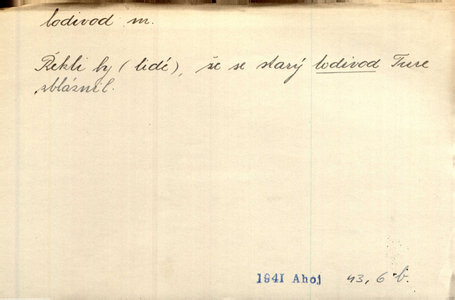 lodivod m.
Řekli by (lidé), že se starý lodivod Ture
zbláznil.
1941 Ahoj 43, 6 b.